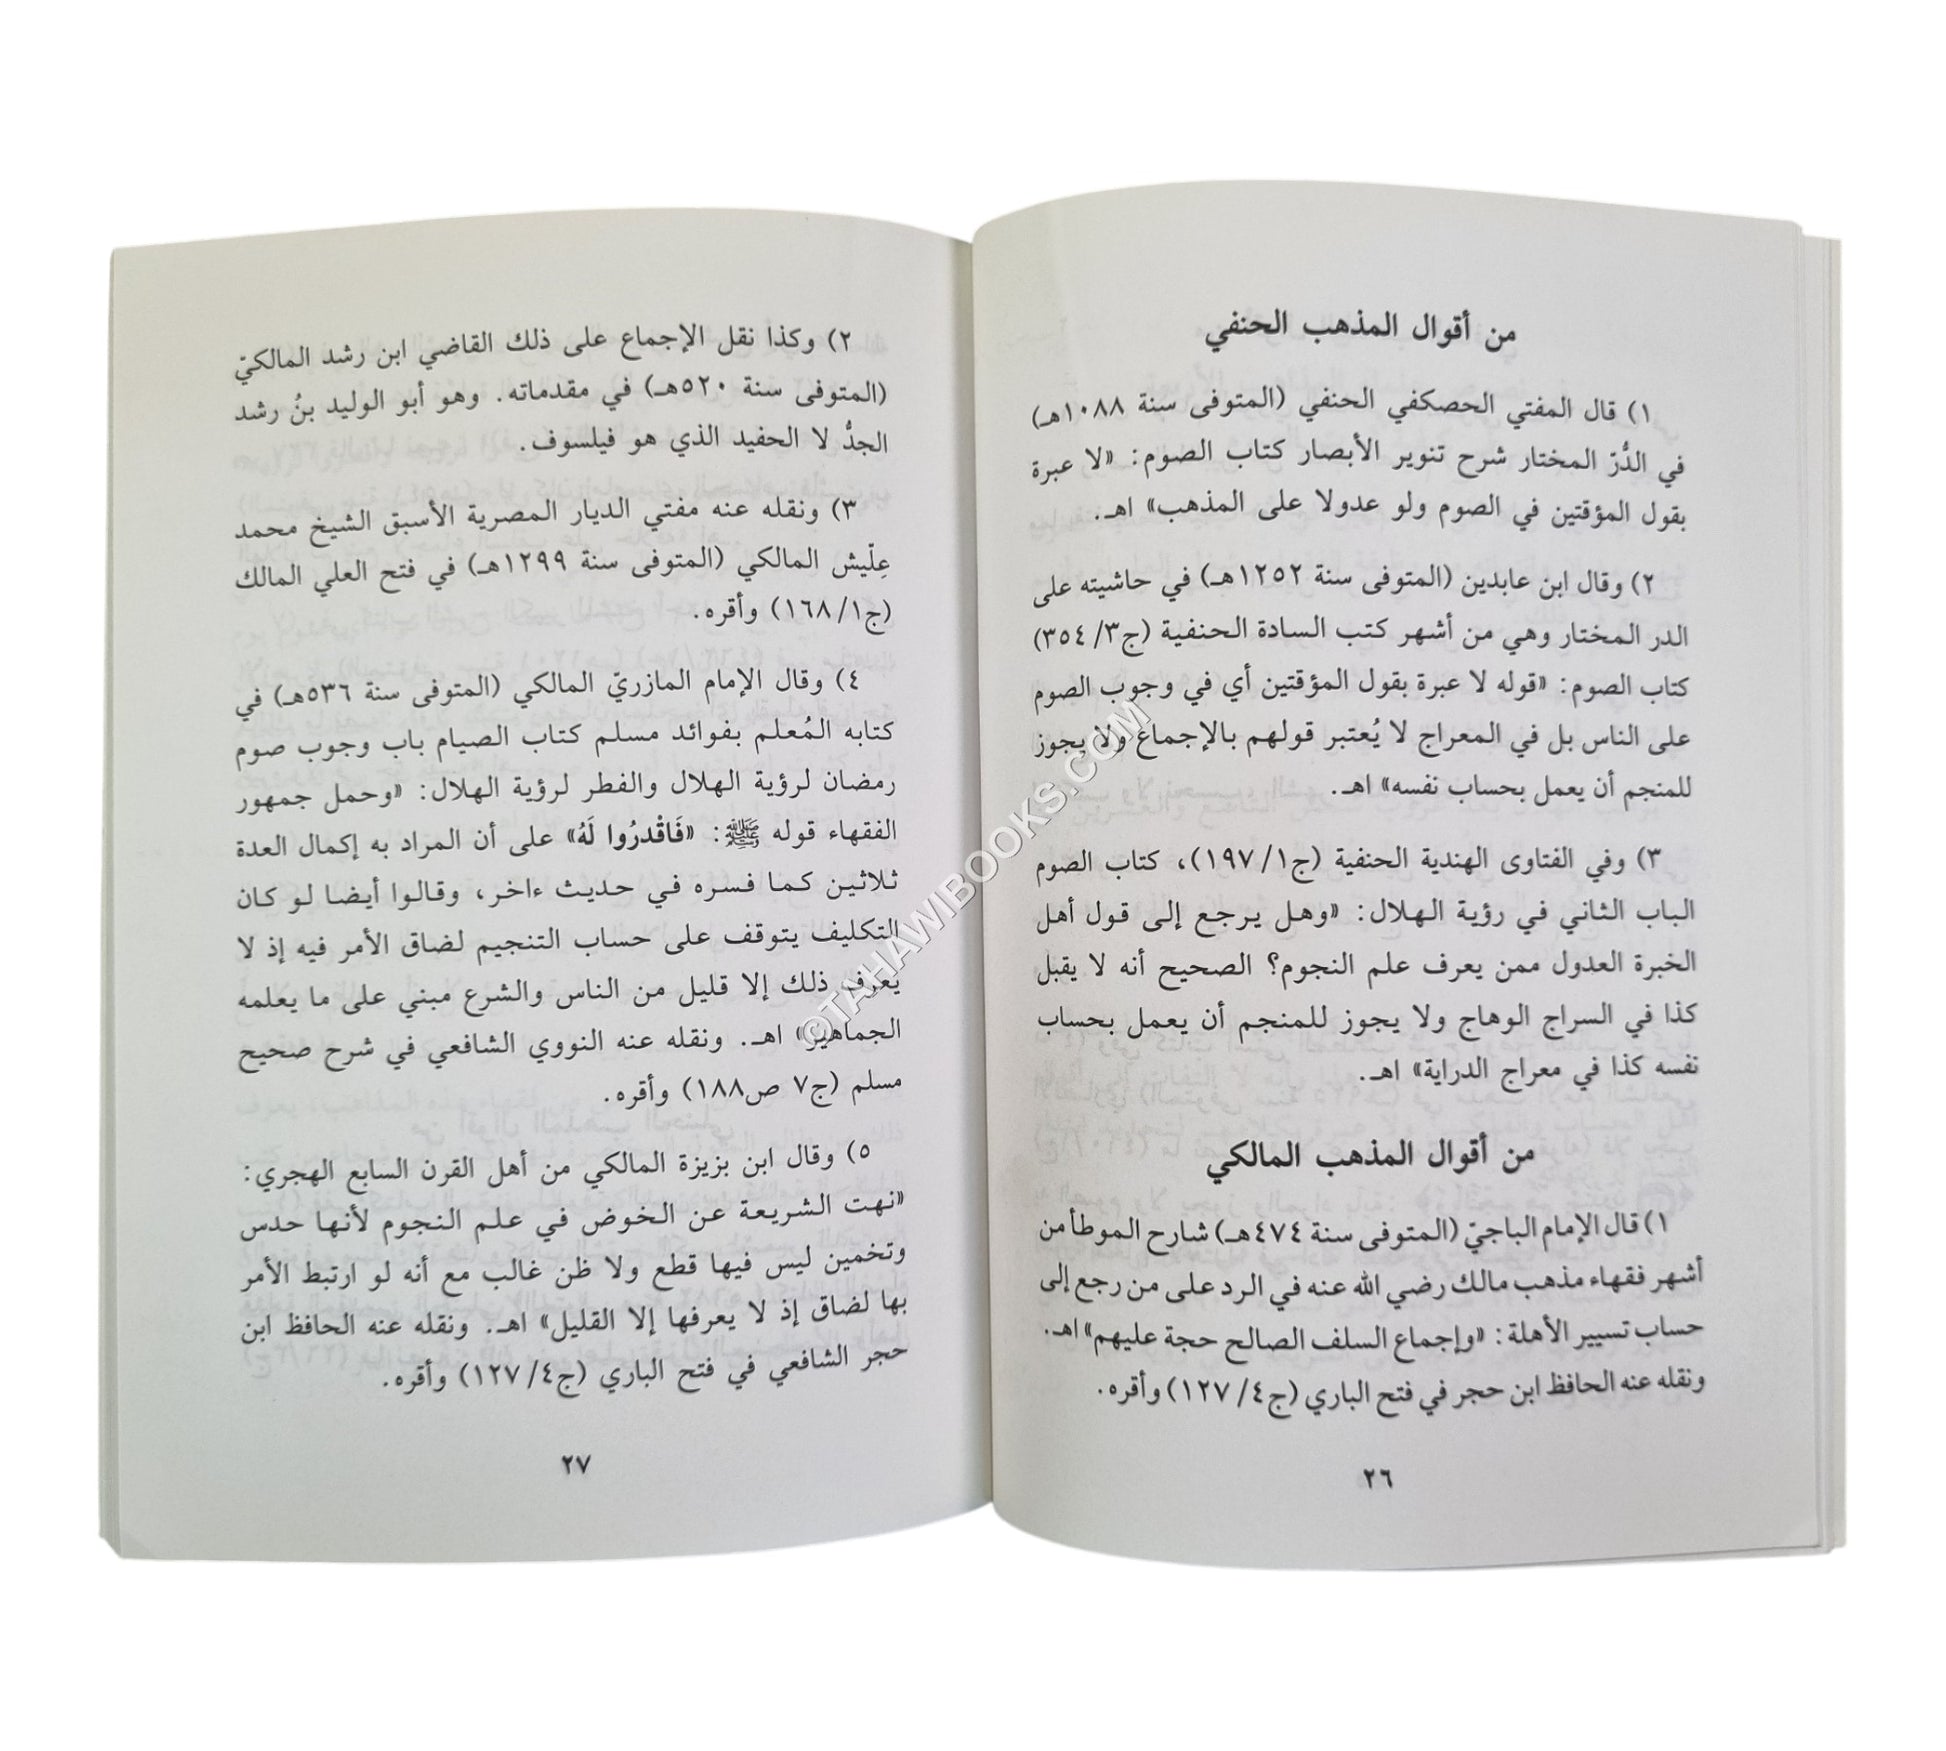 من أقوال المذهب الحنفي
١) قال المفتي الحصكفي الحنفي (المتوفى سنة ١٠٨٨هـ)
في الدُّرّ المختار شرح تنوير الأبصار كتاب الصوم: «لا عبرة
بقول المؤقتين في الصوم ولو عدولا على المذهب» اهـ.
٢) وقال ابن عابدين (المتوفى سنة ١٢٥٢هـ) في حاشيته على
الدر المختار وهي من أشهر كتب السادة الحنفية (ج٣/ ٣٥٤)
كتاب الصوم: «قوله لا عبرة بقول المؤقتين أي في وجوب الصوم
على الناس بل في المعراج لا يُعتبر قولهم بالإجماع ولا يجوز
للمنجم أن يعمل بحساب نفسه» اهـ.
٣) وفي الفتاوى الهندية الحنفية (ج١/ ١٩٧)، كتاب الصوم
الباب الثاني في رؤية الهلال: «وهل يرجع إلى قول أهل
الخبرة العدول ممن يعرف علم النجوم؟ الصحيح أنه لا يقبل
كذا في السراج الوهاج ولا يجوز للمنجم أن يعمل بحساب
نفسه كذا في معراج الدراية» اهـ.
من أقوال المذهب المالكي
١) قال الإمام الباجيّ (المتوفى سنة ٤٧٤هـ) شارح الموطأ من
أشهر فقهاء مذهب مالك رضي الله عنه في الرد على من رجع إلى
حساب تسيير الأهلة: «وإجماع السلف الصالح حجة عليهم» اهـ.
ونقله عنه الحافظ ابن حجر في فتح الباري (ج٤/ ١٢٧) وأقره.
٢٦
٢) وكذا نقل الإجماع على ذلك القاضي ابن رشد المالكيّ
(المتوفى سنة ٥٢٠هـ) في مقدماته. وهو أبو الوليد بنُ رشد
الجدُّ لا الحفيد الذي هو فيلسوف.
٣) ونقله عنه مفتي الديار المصرية الأسبق الشيخ محمد
عِلّيش المالكي (المتوفى سنة ١٢٩٩هـ) في فتح العلي المالك
(ج١/ ١٦٨) وأقره.
٤) وقال الإمام المازريّ المالكي (المتوفى سنة ٥٣٦هـ) في
كتابه المُعلم بفوائد مسلم كتاب الصيام باب وجوب صوم
رمضان لرؤية الهلال والفطر لرؤية الهلال: «وحمل جمهور
الفقهاء قوله ﷺ: «فَاقْدرُوا لَهُ» على أن المراد به إكمال العدة
ثلاثين كما فسره في حديث ءاخر، وقالوا أيضا لو كان
التكليف يتوقف على حساب التنجيم لضاق الأمر فيه إذ لا
يعرف ذلك إلا قليل من الناس والشرع مبني على ما يعلمه
الجماهير» اهـ. ونقله عنه النووي الشافعي في شرح صحيح
مسلم (ج٧ ص١٨٨) وأقره.
٥) وقال ابن بزيزة المالكي من أهل القرن السابع الهجري:
«نهت الشريعة عن الخوض في علم النجوم لأنها حدس
وتخمين ليس فيها قطع ولا ظن غالب مع أنه لو ارتبط الأمر
بها لضاق إذ لا يعرفها إلا القليل» اهـ. ونقله عنه الحافظ ابن
حجر الشافعي في فتح الباري (ج٤/ ١٢٧) وأقره.
٢٧
©TAHAWIBOOKS.COM